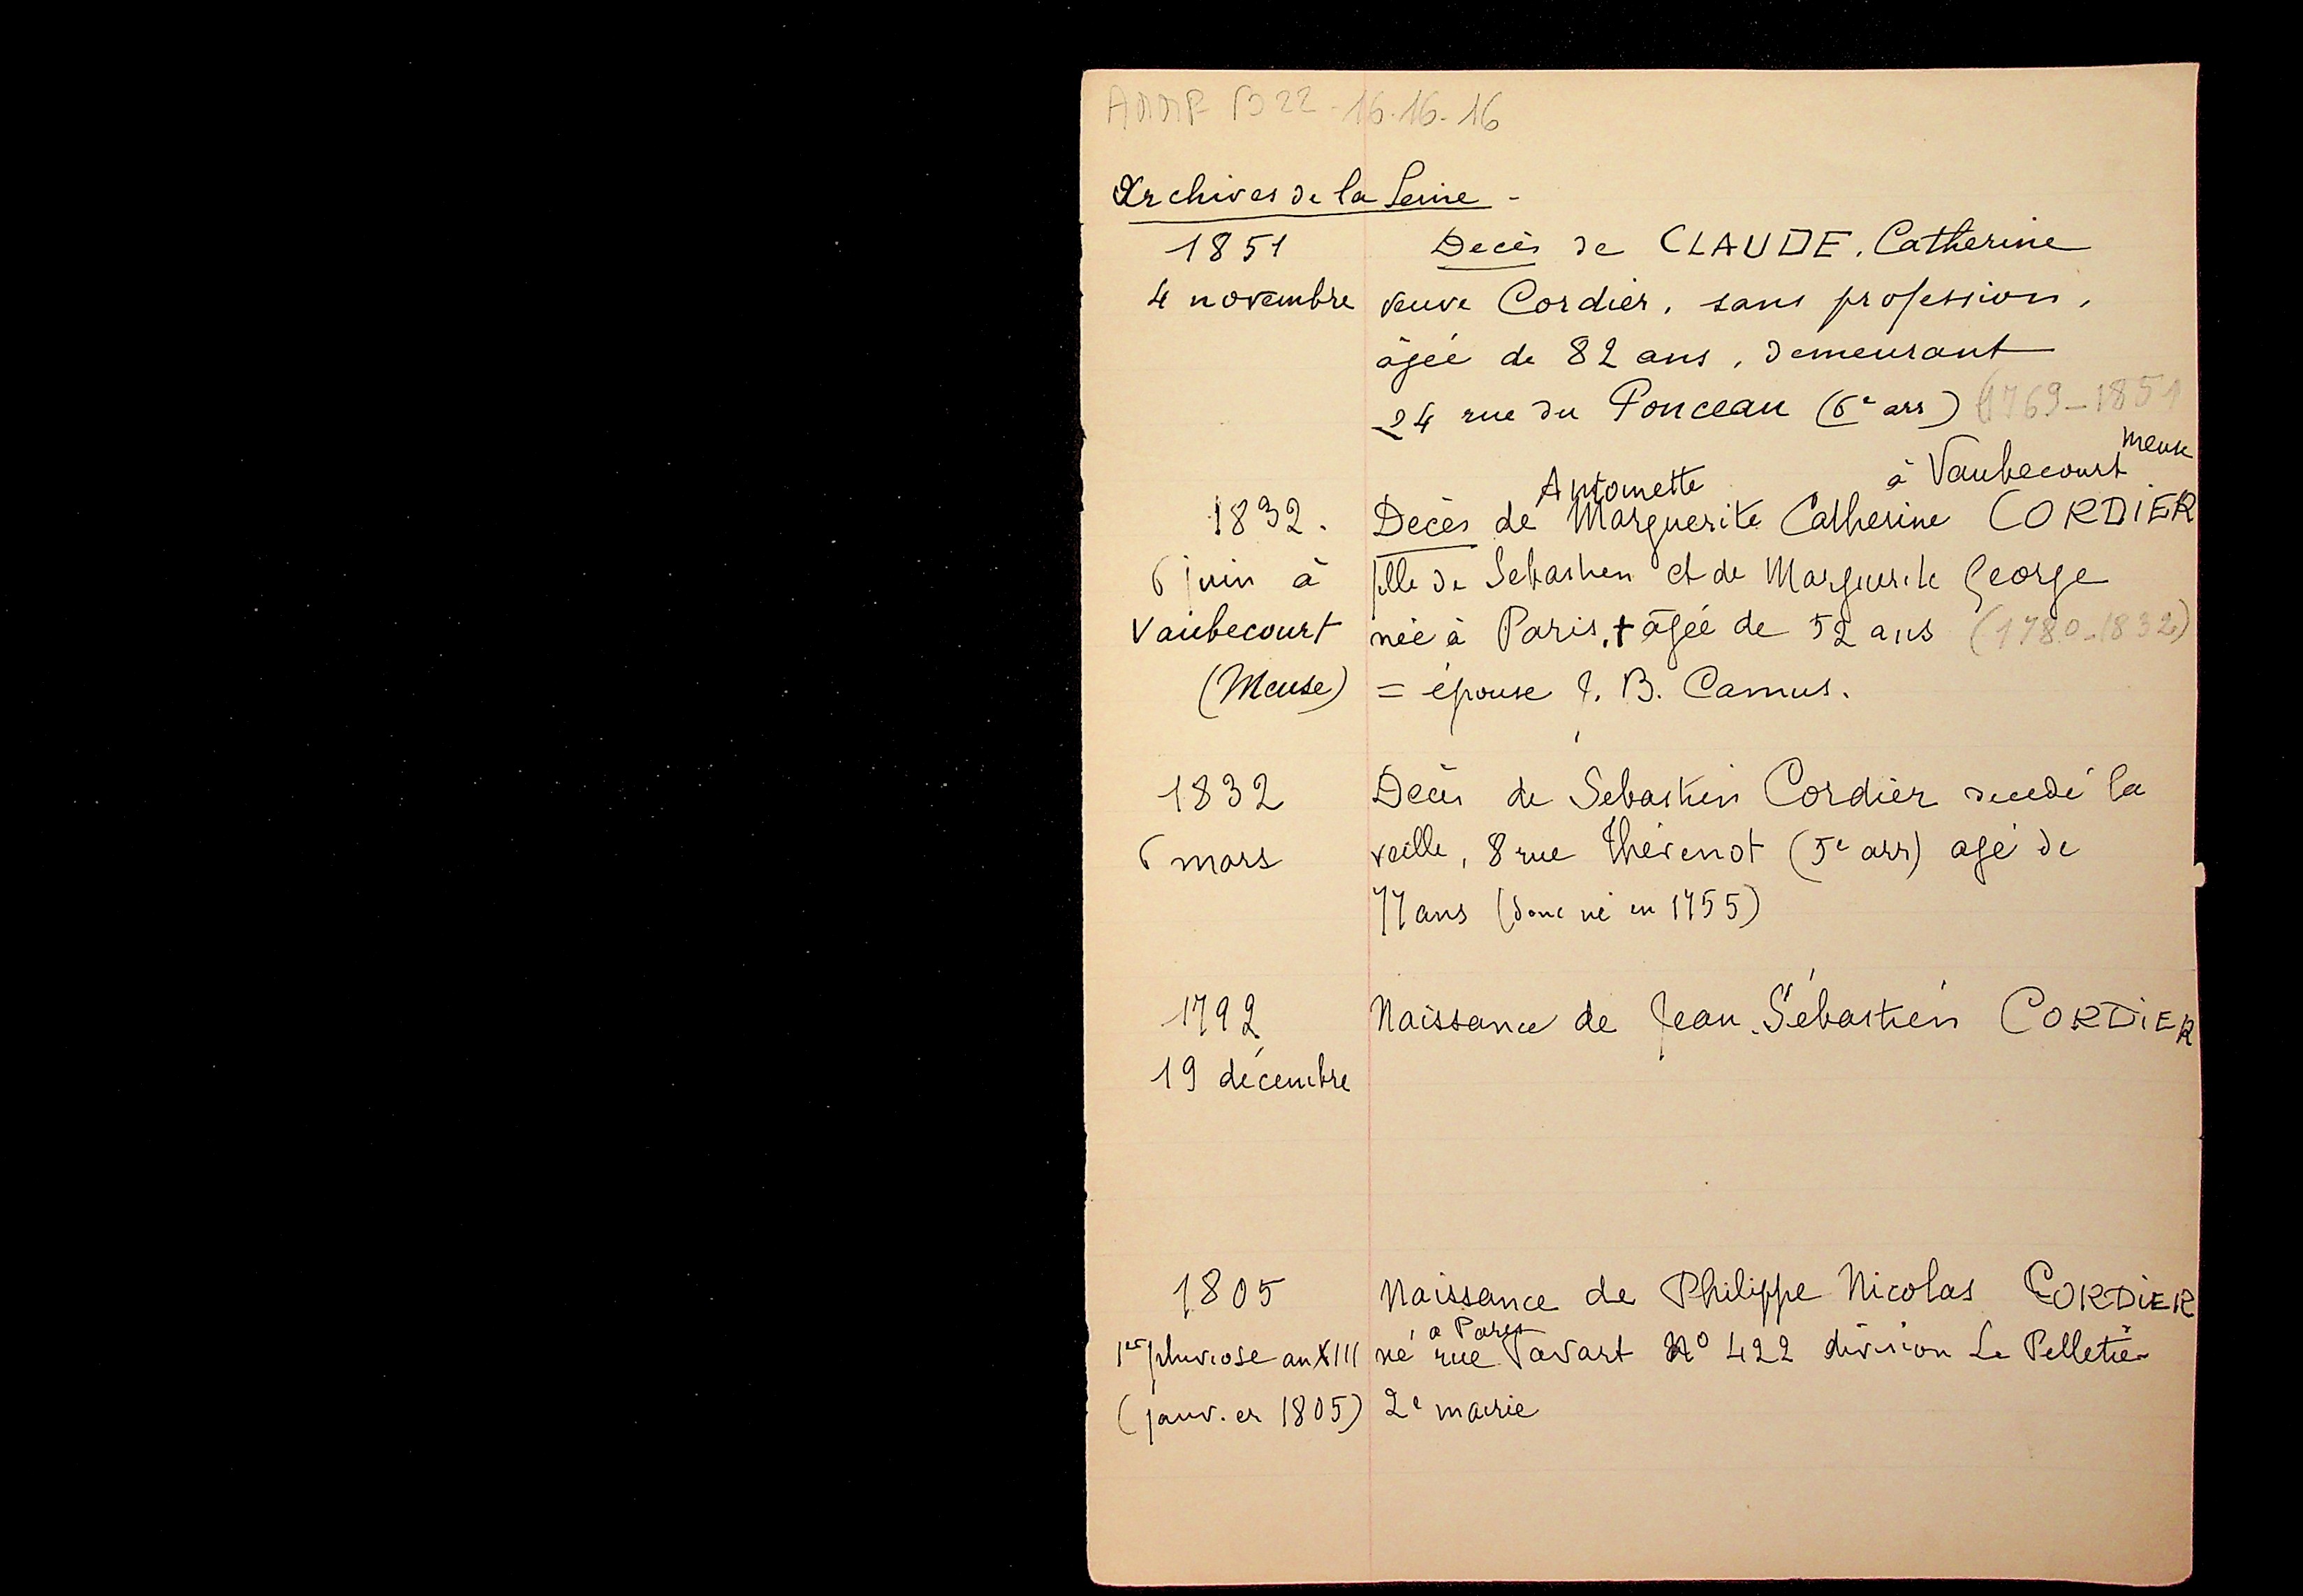 AMMP B22-16.16-16
Archives de la Seine -
1851 Decès de CLAUDE, Catherine
4 novembre veuve Cordier, sans profession,
âgée de 82 ans, demeurant
24 rue du Ponceau (6e arr) (1769-1851
à Vaubecourt Meuse
Antoinette
1832. Decès de Marguerite Catherine CORDIER
6 juin à fille de Sebastien et de Marguerite George
Vaubecourt née à Paris, + âgée de 52 ans (1780-1832)
(Meuse) = épouse J. B. Camus.
1832 Decès de Sebastien Cordier decedé la
6 mars veille, 8 rue Thévenot (5e arr) agé de
77 ans (donc né en 1755)
1792 Naissance de Jean Sébastien CORDIER
19 décembre
1805 Naissance de Philippe Nicolas CORDIER
à Paris
1er pluviose an XIII né rue Favart No 422 division Le Pelletier
(janvier 1805) 2e mairie